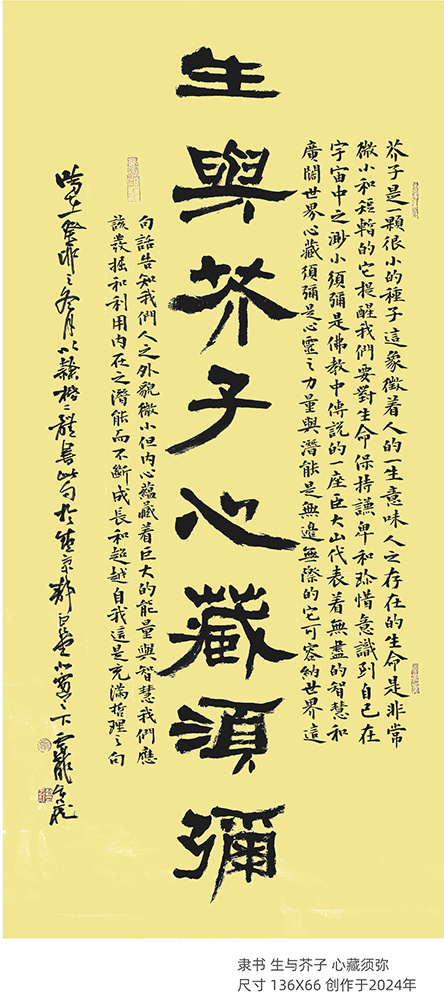 生與芥子心藏須彌
芥子是一顆很小的種子這象徵着人的一生意味人之存在的生命是非常
微小和短暫的它提醒我們要對生命保持謙卑和珍惜意識到自己在
宇宙中之渺小須彌是佛教中傳說的一座巨大山代表着無盡的智慧和
廣闊世界心藏須彌是心靈之力量與潛能是無邊無際的它可容納世界這
向話告知我們人之外貌微小但内心蘊藏着巨大的能量與智慧我們應
該發掘和利用内在之潛能而不斷成長和超越自我這是充滿哲理之向
時在癸卯之冬月以隸楷二體書此句於京
隶书 生与芥子 心藏须弥
尺寸 136X66 创作于2024年